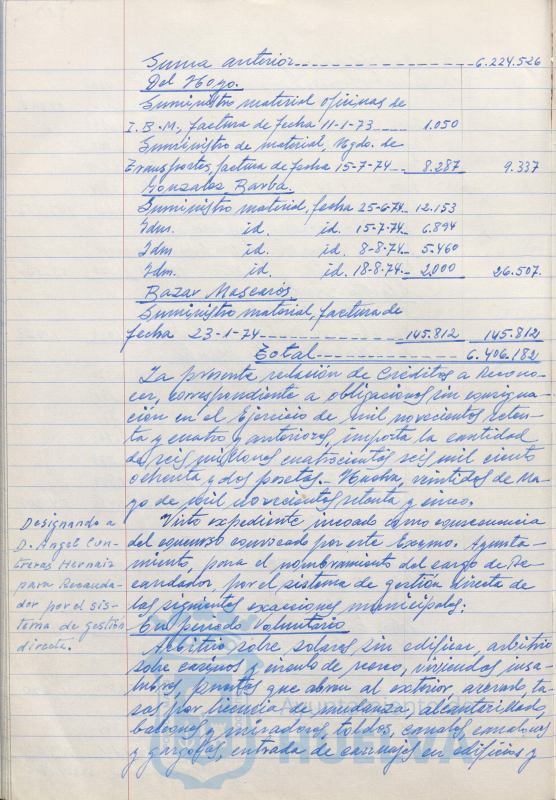 Suma anterior 6.224.526
Del Hoyo.
Suministro material oficinas de
I.B.M., factura de fecha 11-1-73 1.050
Suministro de material, Ngdo. de
Transportes, factura de fecha 15-7-74 8.287 9.337
Gonzalez Barba.
Suministro material, fecha 25-6-74 12.153
Idm. id. id. 15-7-74 6.894
Idm id. id. 8-8-74 5.460
Idm. id. id. 18-8-74 2.000 26.507.
Bazar Mascarós.
Suministro material, factura de
fecha 23-1-74 145.812 145.812
Total 6.406.182
La presente relación de Créditos a Recono-
cer, correspondiente a obligaciones sin consigna-
ción en el Ejercicio de mil novecientos seten-
ta y cuatro y anteriores, importa la cantidad
de seis millones cuatrocientos seis mil ciento
ochenta y dos pesetas.- Huelva, veintidos de Ma-
yo de mil novecientos setenta y cinco.
Visto expediente incoado como consecuencia
del concurso convocado por este Excmo. Ayunta-
miento, para el nombramiento del cargo de Re-
caudador, por el sistema de gestión directa de
las siguientes exacciones municipales:
En periodo Voluntario
Arbitrio sobre solares sin edificar, arbitrio
sobre casinos y circulo de recreo, viviendas insa-
lubres, puertas que abren al exterior, acerado, ta-
sas por licencia de mudanza, alcantarillado,
balcones y miradores, toldos, canales, canalones
y gargolas, entrada de carruajes en edificios y
Designando a
D. Angel Con-
treras Hernaiz
para Recauda-
dor por el sis-
tema de gestión
directa.
HUELVA